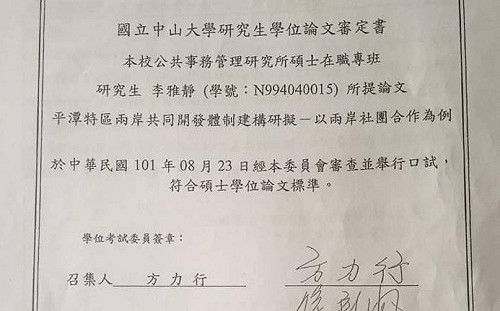 國立中山大學研究生學位論文審定書
本校公共事務管理研究所碩士在職專班
研究生 李雅靜 (學號：N994040015) 所提論文
平潭特區兩岸共同開發體制建構研擬－以兩岸社團合作為例
於中華民國 101 年 08 月 23 日經本委員會審查並舉行口試，
符合碩士學位論文標準。
學位考試委員簽章：
召集人 方 力 行 方力行